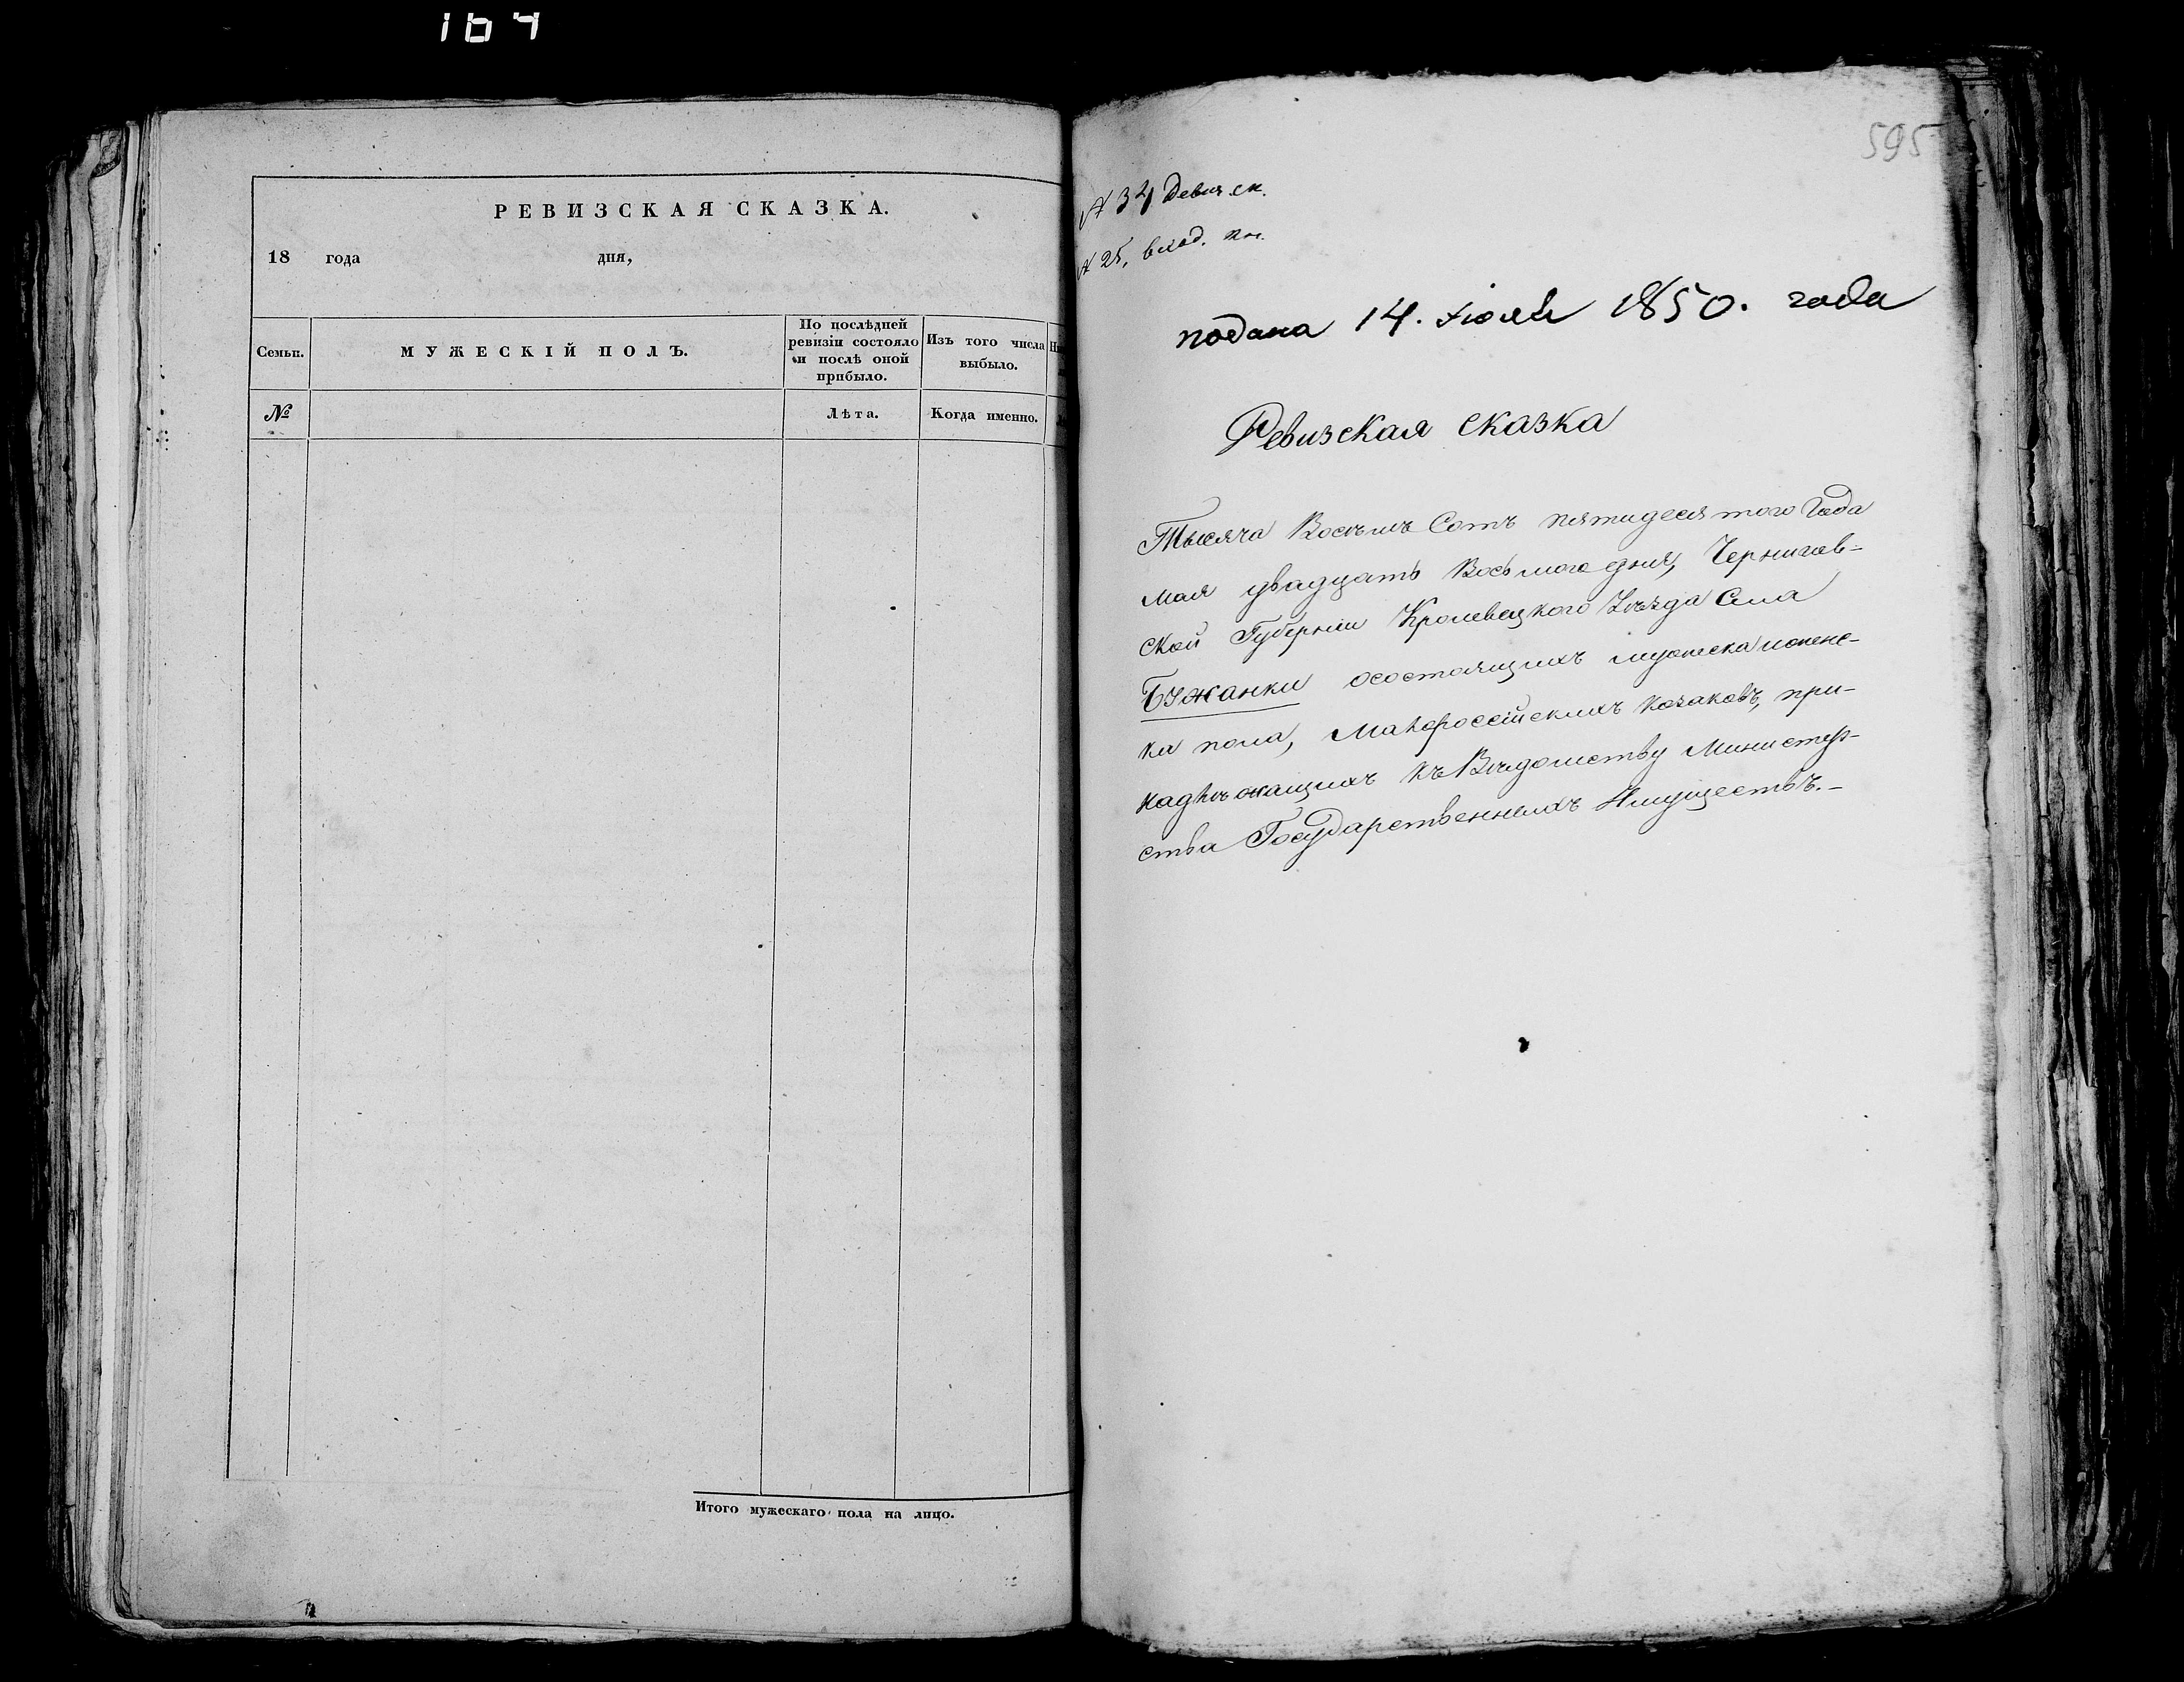 164
РЕВИЗСКАЯ СКАЗКА.
18 года дня,
Семьи.
МУЖЕСКІЙ ПОЛЪ.
По послѣдней
ревизіи состояло
и послѣ оной
прибыло.
Изъ того числа
выбыло.
№
Лѣта.
Когда именно.
Итого мужескаго пола на лицо.
595
№ 34
№ 25, вход. кн.
подана 14. Іюля 1850. года
Ревизская сказка
Тысяча Восемь Сотъ пятидесятого Года
мая двадцать Восьмого дня, Чернигов-
ской Губерніи Кролевецкого Уѣзда Села
Бужанки осостоящихъ мужеска иженс-
ка пола, Малороссійскихъ козаковъ, при-
надлѣжащихъ къ Вѣдомству Министер-
ства Государственныхъ Имуществъ.-